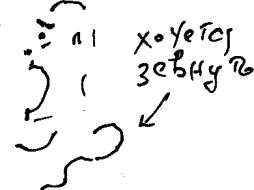 хочется
зевнуть